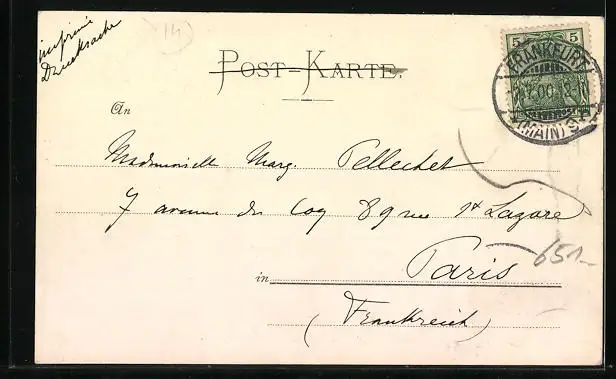 imprimé
Drucksache
POST-KARTE.
5 5
FRANKFURT
(MAIN)
An
Mademoiselle Marg. Pellechet
7 avenue du Coq 89 rue St Lazare
in Paris
651-
(Frankreich)